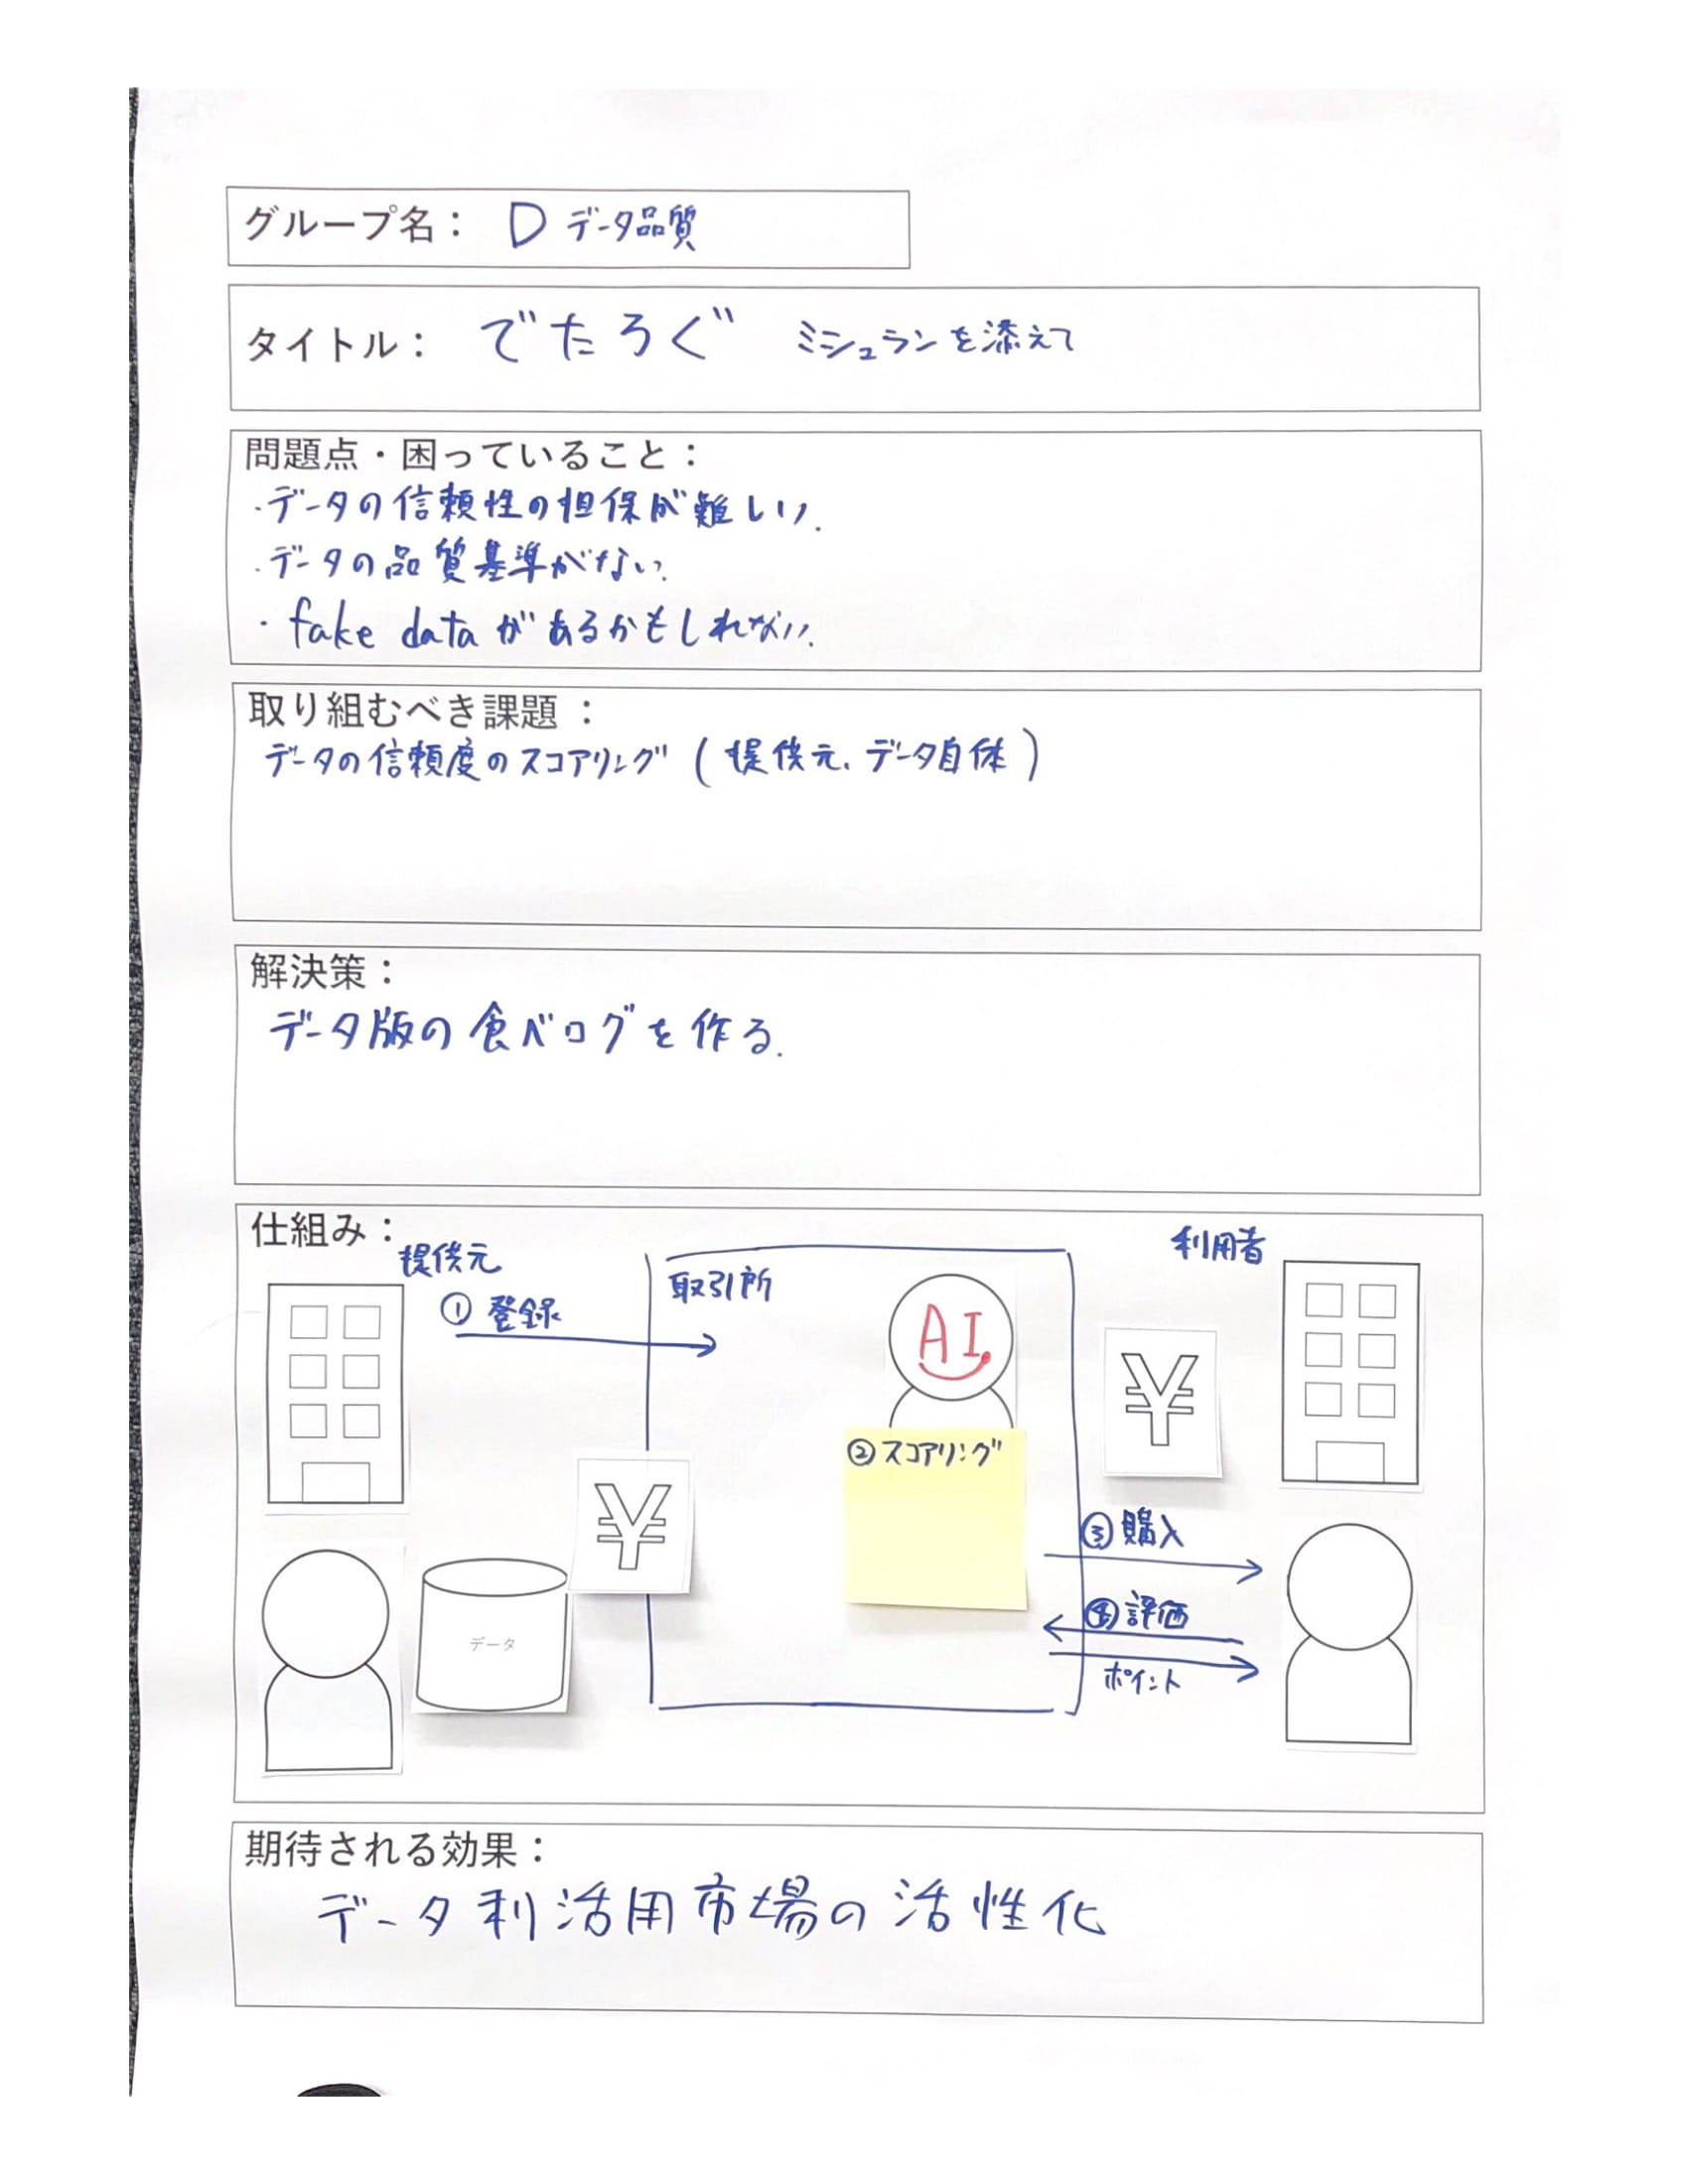 グループ名： D データ品質
タイトル： でたろぐ ミシュランを添えて
問題点・困っていること：
・データの信頼性の担保が難しい.
・データの品質基準がない.
・fake dataがあるかもしれない.
取り組むべき課題：
データの信頼度のスコアリング(提供元、データ自体)
解決策：
データ版の食べログを作る.
仕組み：
提供元
① 登録
取引所
AI.
利用者
¥
② スコアリング
¥
③ 購入
④ 評価
ポイント
データ
期待される効果：
データ利活用市場の活性化